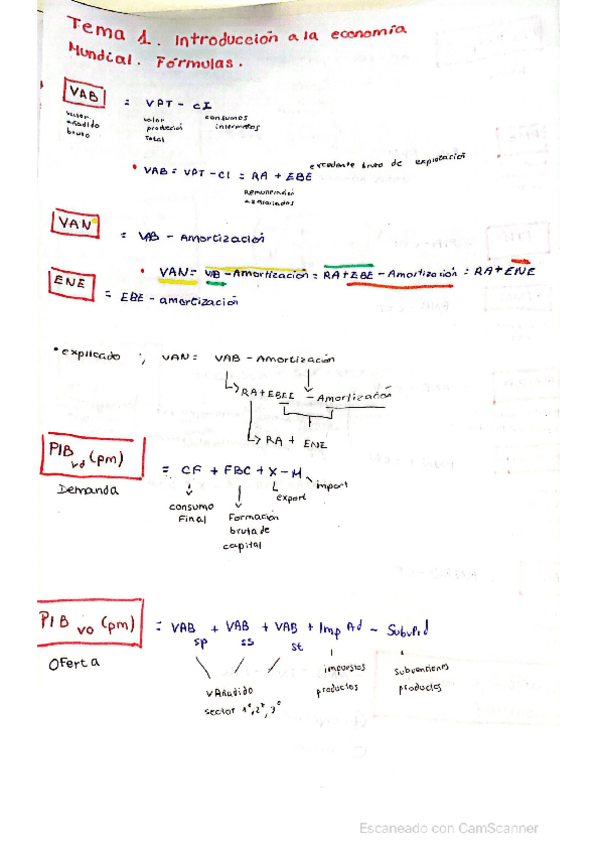 Tema 1. Introducción a la economía
Mundial. Fórmulas.
VAB = VPT - CI
valor añadido bruto
valor producción total
consumos intermedios
• VAB = VPT - CI = RA + EBE
excedente bruto de explotación
Remuneración asalariados
VAN = VAB - Amortización
• VAN = VAB - Amortización = RA + EBE - Amortización = RA + ENE
ENE = EBE - amortización
• explicado ; VAN = VAB - Amortización
RA + EBE - Amortización
RA + ENE
PIB vd (pm) = CF + FBC + X - M
Demanda
import
export
consumo Final
Formación bruta de capital
PIB vo (pm) = VAB sp + VAB ss + VAB st + Imp - Subv
Oferta
VAñadido sector 1º, 2º, 3º
impuestos productos
subvenciones productos
Escaneado con CamScanner